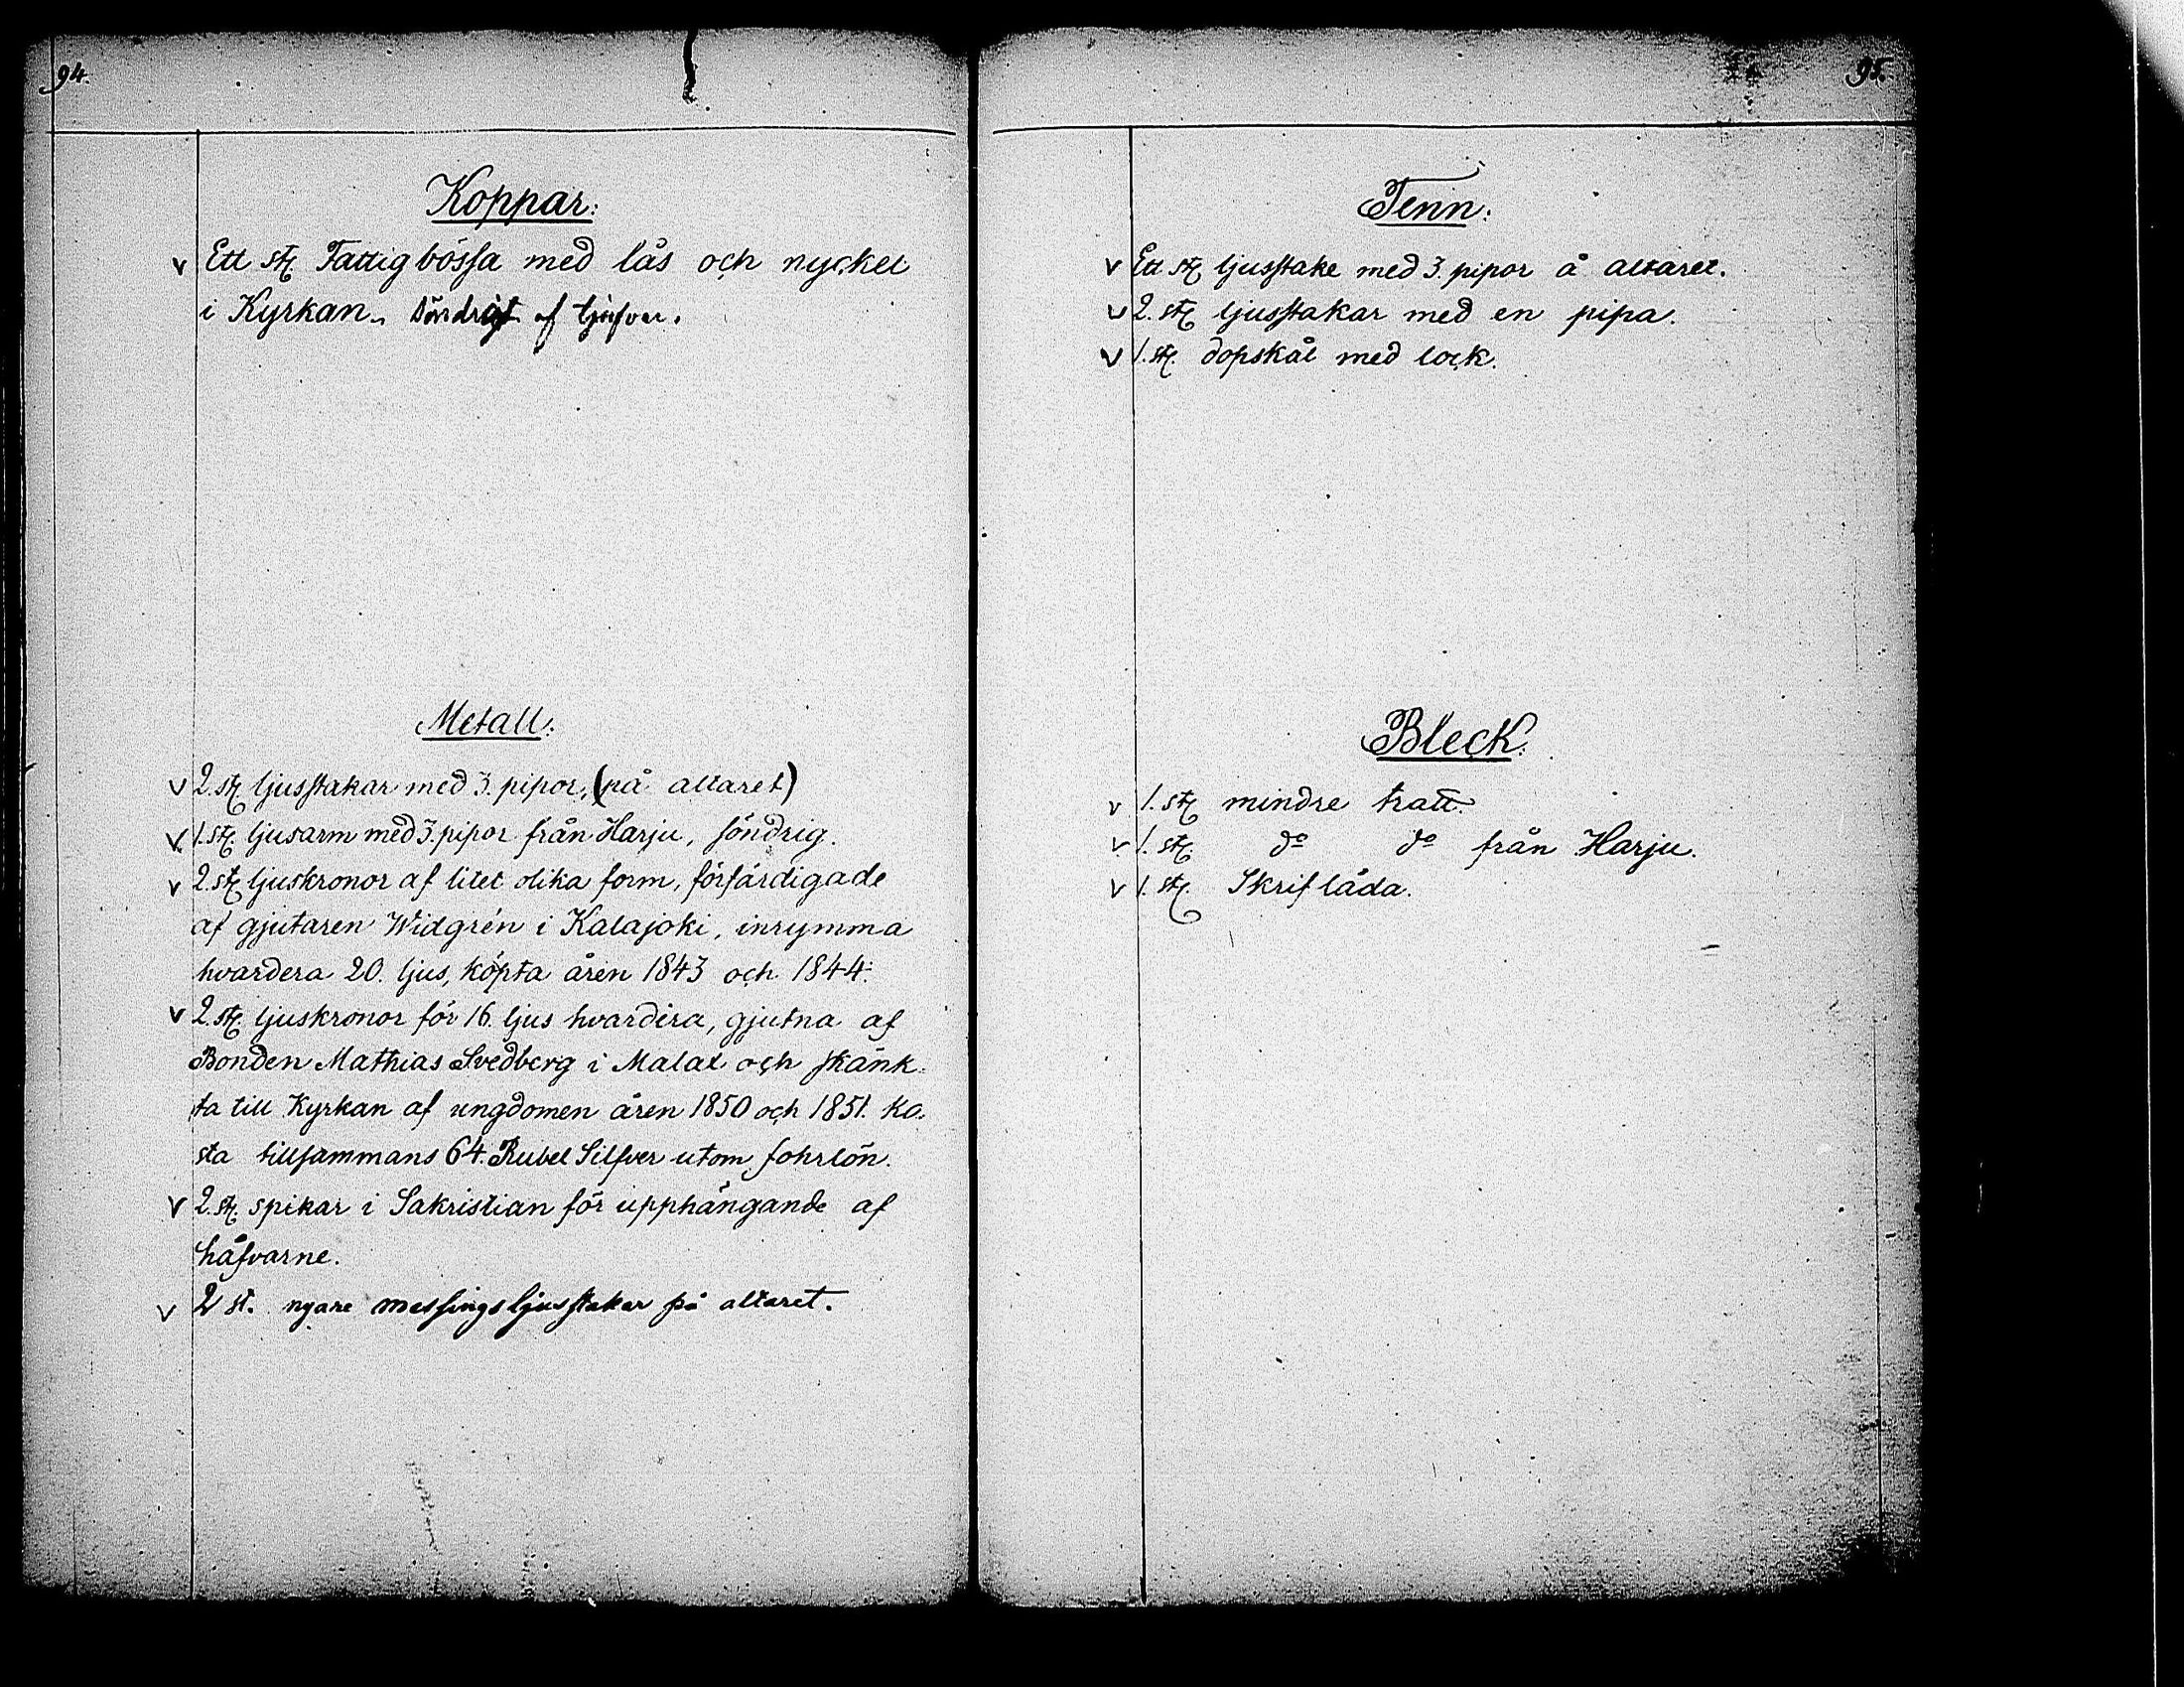 94.
Koppar:
v Ett st. Fattigbössa med lås och nyckel
i Kyrkan. Söndrigt af tjufvar.
Metall:
v 2. st. ljusstakar med 3. pipor, (på altaret)
v 1. st. ljusarm med 3. pipor från Harju, söndrig.
v 2. st. ljuskronor af litet olika form, förfärdigade
af gjutaren Widgrén i Kalajoki, inrymma
hvardera 20. ljus, köpta åren 1843 och 1844.
v 2. st. ljuskronor för 16. ljus hvardera, gjutna af
Bonden Mathias Svedberg i Malax och skänk-
ta till Kyrkan af ungdomen åren 1850 och 1851. ko-
sta tillsammans 64. Rubel Silfver utom fohrlön.
v 2. st. spikar i Sakristian för upphängande af
håfvarne.
v 2 st. nyare messingsljusstakar på altaret.
95.
Tenn:
v Ett st. ljusstake med 3. pipor å altaret.
v 2. st. ljusstakar med en pipa.
v 1. st. dopskål med lock.
Bleck:
v 1. st. mindre tratt.
v 1. st. do do från Harju.
v 1. st. Skriflåda.